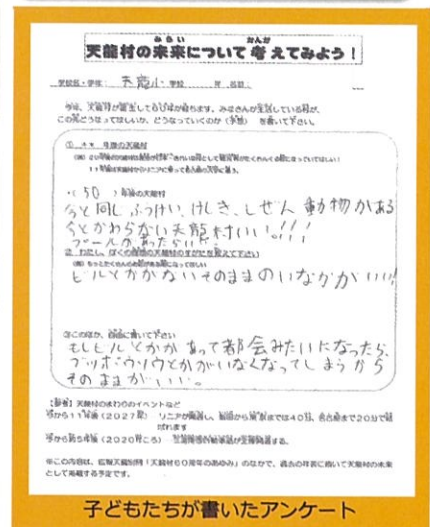 みらい かんが
天龍村の未来について考えてみよう！
学校名・学年： 天龍小 学校 年 名前：
今年、天龍村が誕生して60年が経ちます。みなさんが生活している村が、
この先どうなってほしいか、どうなっていくのか（予想）を書いて下さい。
年後の天龍村
・（ 50 ）年後の天龍村
今と同じふうけい、けしき、しぜん 動物がある
今とかわらない天龍村いい！！！
プールがあったらいい
② わたし、ぼくの理想の天龍村のすがたを教えて下さい
（例）もっとたくさんの
ビルとかがないそのままのいなかがいい！！
③このほか、自由に書いて下さい
もしビルとかがあって都会みたいになったら、
ブッポウソウとかがいなくなってしまうから
そのままがいい。
【参考】天龍村のまわりのイベントなど
今から11年後（2027年） リニアが開通し、飯田から東京までは40分、名古屋まで20分で結
ばれます
今から約5年後（2020年ごろ）
※この内容は、広報天龍別冊「天龍村60周年のあゆみ」のなかで、過去の年表に続いて天龍村の未来
として掲載する予定です。
子どもたちが書いたアンケート